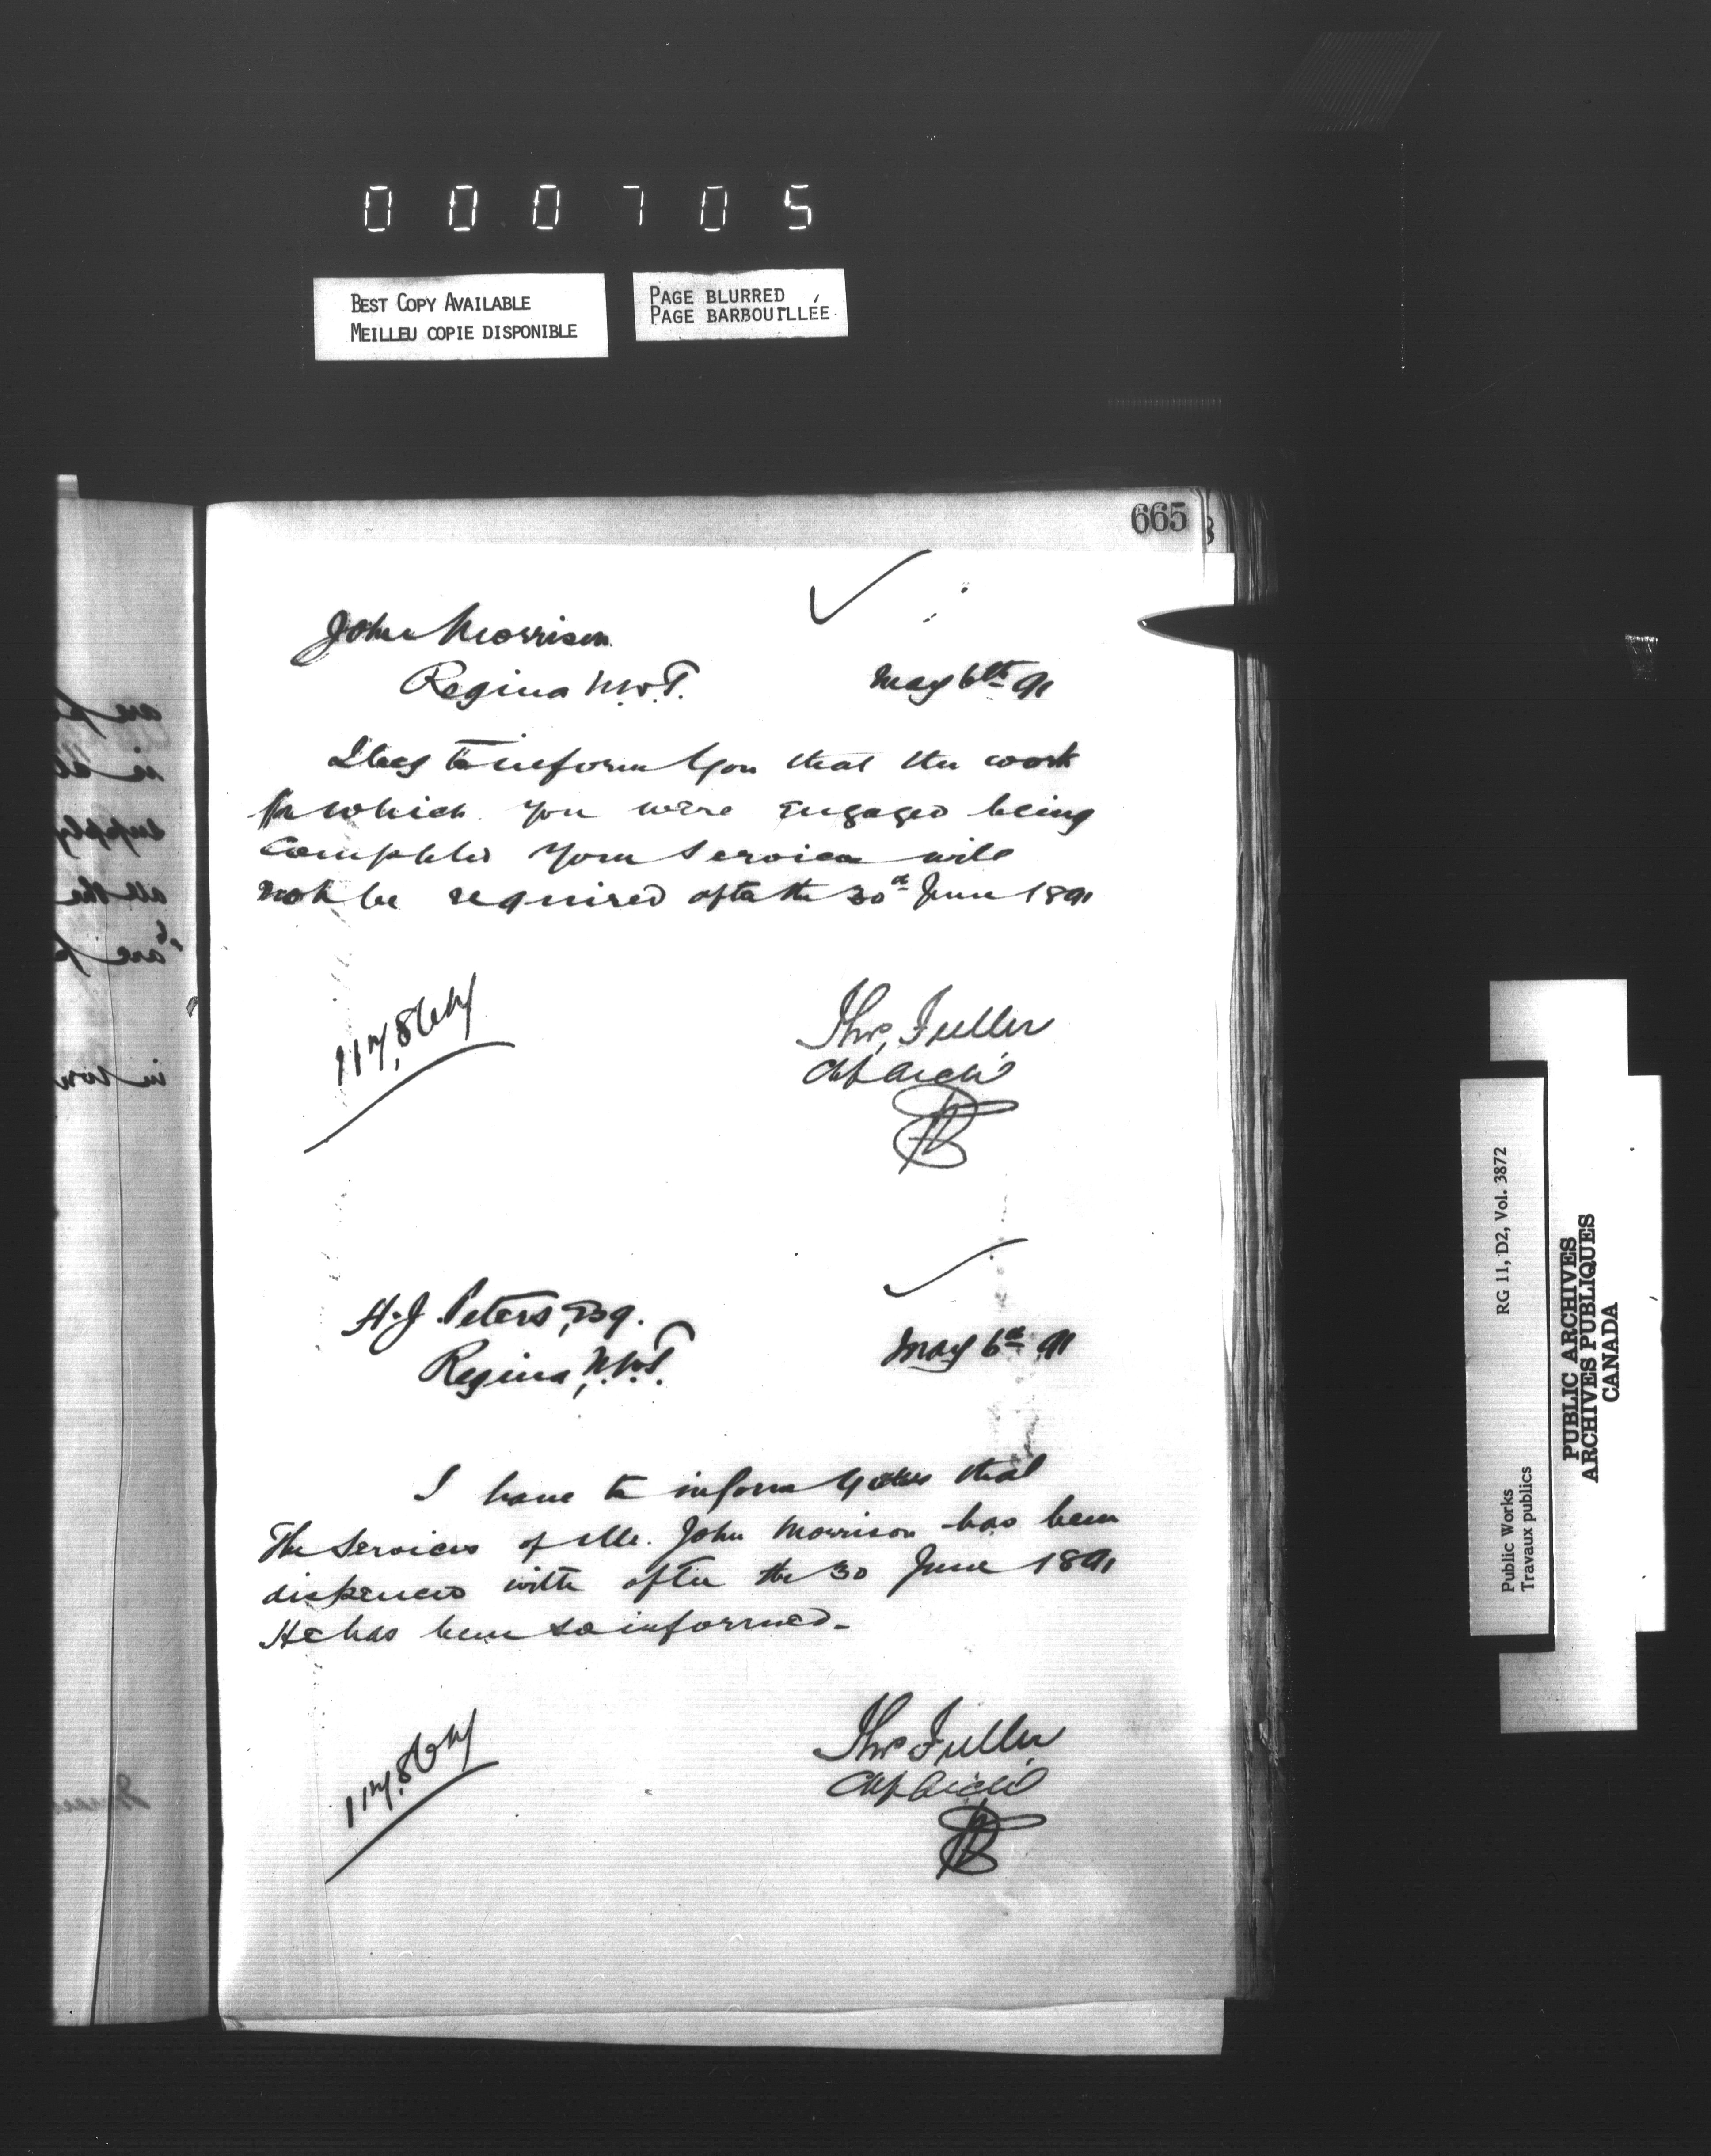 000705
BEST COPY AVAILABLE
MEILLEU COPIE DISPONIBLE
PAGE BLURRED
PAGE BARBOUILLÉE
665
John Morrison
Regina N.W.T.
May 6th 91
I beg to inform you that the work
for which you were engaged being
completed your services will
not be required after the 30th June 1891
Thos. Fuller
Chf Archt
H. J. Peters, Esq.
Regina, N.W.T.
May 6th 91
I have to inform you that
The Services of Mr. John Morrison has been
dispensed with after the 30 June 1891
He has been so informed.
Thos Fuller
Chf Archt
are
supply
all the
are
in
RG 11, D2, Vol. 3872
Public Works
Travaux publics
PUBLIC ARCHIVES
ARCHIVES PUBLIQUES
CANADA